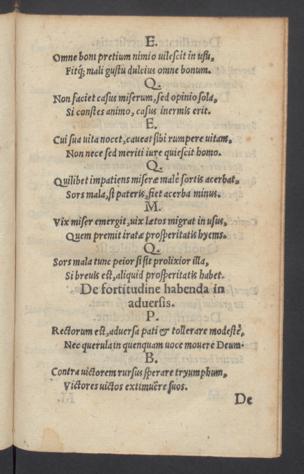 E.
Omne boni pretium nimio uilescit in usu,
Fitq́; mali gustu dulcius omne bonum.
Q.
Non faciet casus miserum, sed opinio sola,
Si constes animo, casus inermis erit.
E.
Cui sua uita nocet, caueat sibi rumpere uitam,
Non nece sed meriti iure quiescit homo.
Q.
Quilibet impatiens miseræ malè sortis acerbat,
Sors mala, si pateris, fiet acerba minus.
M.
Vix miser emergit, uix lætos migrat in usus,
Quem premit iratæ prosperitatis hyems.
Q.
Sors mala tunc peior si sit prolixior illa,
Si breuis est, aliquid prosperitatis habet.
De fortitudine habenda in
aduersis.
P.
Rectorum est, aduersa pati & tollerare modestè,
Nec querula in quenquam uoce mouere Deum.
B.
Contra uictorem rursus sperare tryumphum,
Victores uictos extimuêre suos.
De